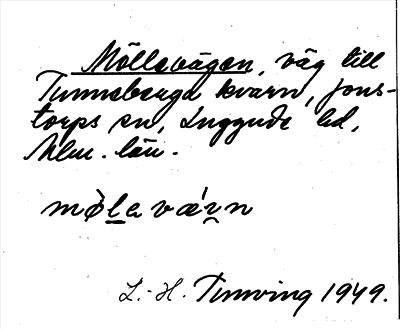 Möllavägen, väg till
Tunnabergа kvarn, Jons-
torps sn, Luggude hd,
Mlm. län.
mø̀la vǽɪn
L.-H. Timving 1949.